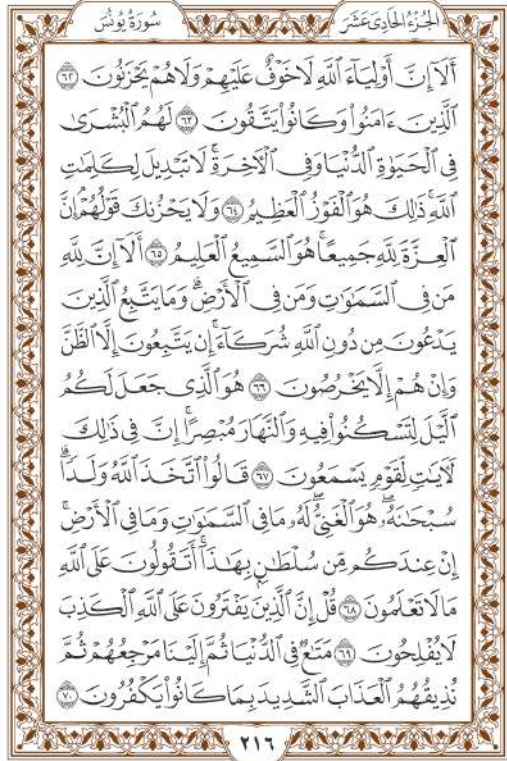 الجُزْءُ الحَادِي عَشَرَ
سُورَةُ يُونُسَ
أَلَآ إِنَّ أَوْلِيَآءَ ٱللَّهِ لَا خَوْفٌ عَلَيْهِمْ وَلَا هُمْ يَحْزَنُونَ ٦٢
ٱلَّذِينَ ءَامَنُوا۟ وَكَانُوا۟ يَتَّقُونَ ٦٣ لَهُمُ ٱلْبُشْرَىٰ
فِى ٱلْحَيَوٰةِ ٱلدُّنْيَا وَفِى ٱلْأَخِرَةِ ۚ لَا تَبْدِيلَ لِكَلِمَٰتِ
ٱللَّهِ ۚ ذَٰلِكَ هُوَ ٱلْفَوْزُ ٱلْعَظِيمُ ٦٤ وَلَا يَحْزُنكَ قَوْلُهُمْ ۘ إِنَّ
ٱلْعِزَّةَ لِلَّهِ جَمِيعًا ۚ هُوَ ٱلسَّمِيعُ ٱلْعَلِيمُ ٦٥ أَلَآ إِنَّ لِلَّهِ
مَن فِى ٱلسَّمَٰوَٰتِ وَمَن فِى ٱلْأَرْضِ ۗ وَمَا يَتَّبِعُ ٱلَّذِينَ
يَدْعُونَ مِن دُونِ ٱللَّهِ شُرَكَآءَ ۚ إِن يَتَّبِعُونَ إِلَّا ٱلظَّنَّ
وَإِنْ هُمْ إِلَّا يَخْرُصُونَ ٦٦ هُوَ ٱلَّذِى جَعَلَ لَكُمُ
ٱلَّيْلَ لِتَسْكُنُوا۟ فِيهِ وَٱلنَّهَارَ مُبْصِرًا ۚ إِنَّ فِى ذَٰلِكَ
لَأَيَٰتٍ لِّقَوْمٍ يَسْمَعُونَ ٦٧ قَالُوا۟ ٱتَّخَذَ ٱللَّهُ وَلَدًا ۗ
سُبْحَٰنَهُۥ ۖ هُوَ ٱلْغَنِىُّ ۖ لَهُۥ مَا فِى ٱلسَّمَٰوَٰتِ وَمَا فِى ٱلْأَرْضِ ۚ
إِنْ عِندَكُم مِّن سُلْطَٰنٍۭ بِهَٰذَآ ۚ أَتَقُولُونَ عَلَى ٱللَّهِ
مَا لَا تَعْلَمُونَ ٦٨ قُلْ إِنَّ ٱلَّذِينَ يَفْتَرُونَ عَلَى ٱللَّهِ ٱلْكَذِبَ
لَا يُفْلِحُونَ ٦٩ مَتَٰعٌ فِى ٱلدُّنْيَا ثُمَّ إِلَيْنَا مَرْجِعُهُمْ ثُمَّ
نُذِيقُهُمُ ٱلْعَذَابَ ٱلشَّدِيدَ بِمَا كَانُوا۟ يَكْفُرُونَ ٧٠
٢١٦